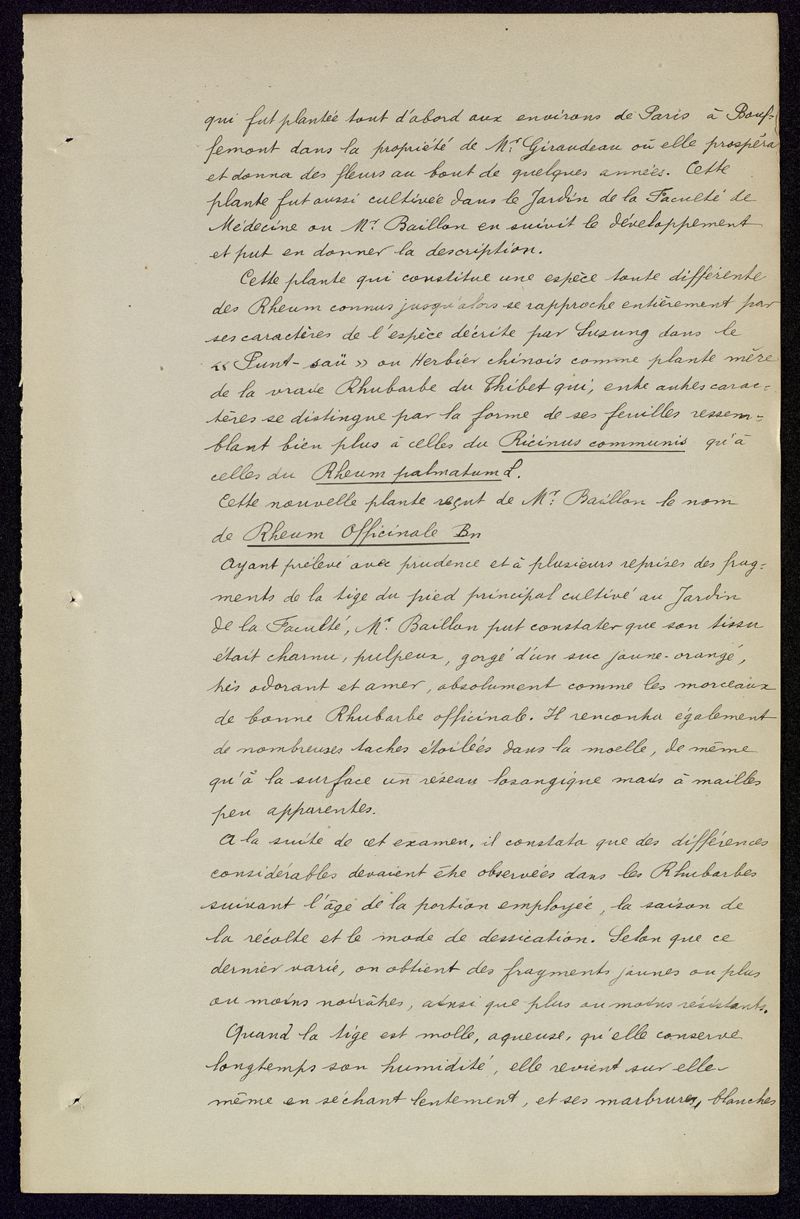 qui fut plantée tout d'abord aux environs de Paris à Bouf-
femont dans la propriété de Mr. Giraudeau où elle prospéra
et donna des fleurs au bout de quelques années. Cette
plante fut aussi cultivée dans le Jardin de la Faculté de
Médecine ou Mr. Baillon en suivit le développement
et put en donner la description.
Cette plante qui constitue une espèce toute différente
des Rheum connus jusqu'alors se rapproche entièrement par
ses caractères de l'espèce décrite par Susung dans le
« Punt-saü » ou Herbier chinois comme plante mère
de la vraie Rhubarbe du Thibet qui, entre autres carac-
tères se distingue par la forme de ses feuilles ressem-
blant bien plus à celles du Ricinus communis qu'à
celles du Rheum palmatum L.
Cette nouvelle plante reçut de Mr. Baillon le nom
de Rheum Officinale Bn
Ayant prélevé avec prudence et à plusieurs reprises des frag-
ments de la tige du pied principal cultivé au Jardin
de la Faculté, Mr. Baillon put constater que son tissu
était charnu, pulpeux, gorgé d'un suc jaune-orangé,
très odorant et amer, absolument comme les morceaux
de bonne Rhubarbe officinale. Il rencontra également
de nombreuses taches étoilées dans la moelle, de même
qu'à la surface un réseau losangique mais à mailles
peu apparentes.
A la suite de cet examen, il constata que des différences
considérables devaient être observées dans les Rhubarbes
suivant l'âge de la portion employée, la saison de
la récolte et le mode de dessication. Selon que ce
dernier varie, on obtient des fragments jaunes ou plus
ou moins noirâtres, ainsi que plus ou moins résistants.
Quand la tige est molle, aqueuse, qu'elle conserve
longtemps son humidité, elle revient sur elle-
même en séchant lentement, et ses marbrures, blanches